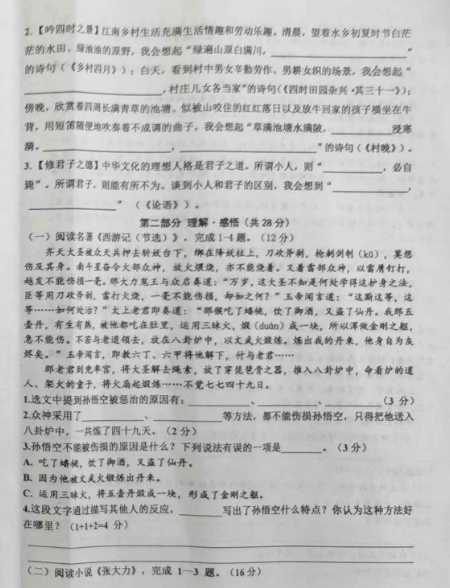 2.【吟四时之景】江南乡村生活充满生活情趣和劳动乐趣。清晨，望着水乡初夏时节白茫
茫的水田、绿油油的原野，我会想起“绿遍山原白满川，____________”
的诗句（《乡村四月》）；白天，看到村中男女辛勤劳作、男耕女织的场景，我会想起“
____________，村庄儿女各当家”的诗句（《四时田园杂兴·其三十一》）；
傍晚，欣赏着四周长满青草的池塘、似被山咬住的红红落日以及放牛回家的孩子横坐在牛
背，用短笛随便地吹奏着不成调的曲子，我会想起“草满池塘水满陂，________浸寒
漪。____________，____________”的诗句（《村晚》）。
3.【修君子之德】中华文化的理想人格是君子之道。所谓小人，则“________，必自
毙”。所谓君子，则能有所不为。谈到小人和君子的区别，我会想到“________，
____________”（《论语》）。
第二部分 理解·感悟（共 28 分）
（一）阅读名著《西游记（节选）》，完成 1-4 题。（12 分）
齐天大圣被众天兵押去斩妖台下，绑在降妖柱上，刀砍斧剁，枪刺剑刳（kū），莫想
伤及其身。南斗星奋令火部众神，放火煨烧，亦不能烧着。又着雷部众神，以雷屑钉打，
越发不能伤损一毫。那大力鬼王与众启奏道：“万岁，这大圣不知是何处学得这护身之法，
臣等用刀砍斧剁，雷打火烧，一毫不能伤损，却如之何？”玉帝闻言道：“这厮这等，这
等……如何处治？”太上老君即奏道：“那猴吃了蟠桃，饮了御酒，又盗了仙丹。我那五
壶丹，有生有熟，被他都吃在肚里，运用三昧火，煅（duàn）成一块，所以浑做金刚之躯，
急不能伤。不若与老道领去，放在八卦炉中，以文武火煅炼。炼出我的丹来，他身自为灰
烬矣。”玉帝闻言，即教六丁、六甲将他解下，付与老君……
那老君到兜率宫，将大圣解去绳索，放了穿琵琶骨之器，推入八卦炉中，命看炉的道
人、架火的童子，将火扇起煅炼……不觉七七四十九日。
1.选文中提到孙悟空被惩治的原因有：________、________、________（3 分）
2.众神采用了________、________、________等方法，都不能伤损孙悟空，只得把他送入
八卦炉中，一共炼了四十九天。（2 分）
3.孙悟空不能被伤损的原因是什么？下列说法有误的一项是________。（3 分）
A. 吃了蟠桃，饮了御酒，又盗了仙丹。
B. 因为他被文武火煅炼出丹来。
C. 运用三昧火，将五壶丹煅成一块，形成了金刚之躯。
4.这段文字通过描写其他人的反应，______写出了孙悟空什么特点？你认为这种方法好
在哪里？（1+1+2=4 分）
（二）阅读小说《张大力》，完成 1—3 题。（16分）